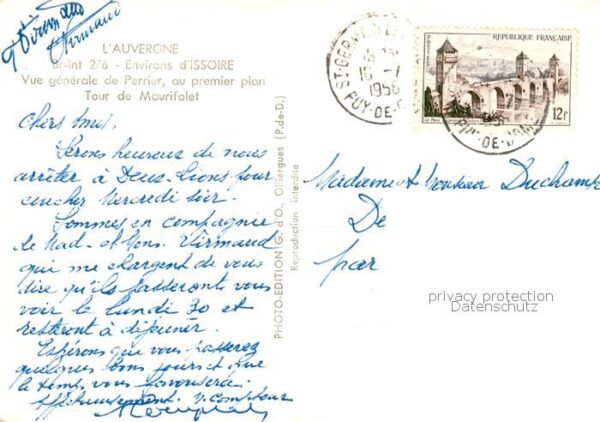 L'AUVERGNE
Br-Int 276 - Environs d'ISSOIRE
Vue générale de Perrier, au premier plan
Tour de Maurifolet
Chers Amis.
Serons heureux de nous
arrêter à Deux-Lions pour
coucher Mercredi soir.
Sommes en compagnie
de Mad. et Mons. Virmaud
qui me chargent de vous
dire qu'ils passeront vous
voir le lundi 30 et
resteront à déjeuner.
Espérons que vous passerez
quelques bons jours et que
le temps vous favorisera.
Affectueusement.
PHOTO-EDITION (G. d'O., Olliergues (P.-de-D.)
Reproduction interdite
ST-GERMAIN
15
16 -
1956
PUY-DE-D
POSTES
REPUBLIQUE FRANÇAISE
12f
PUY-DE-DOME
Madame et Monsieur Duchamp
De
par
privacy protection
Datenschutz